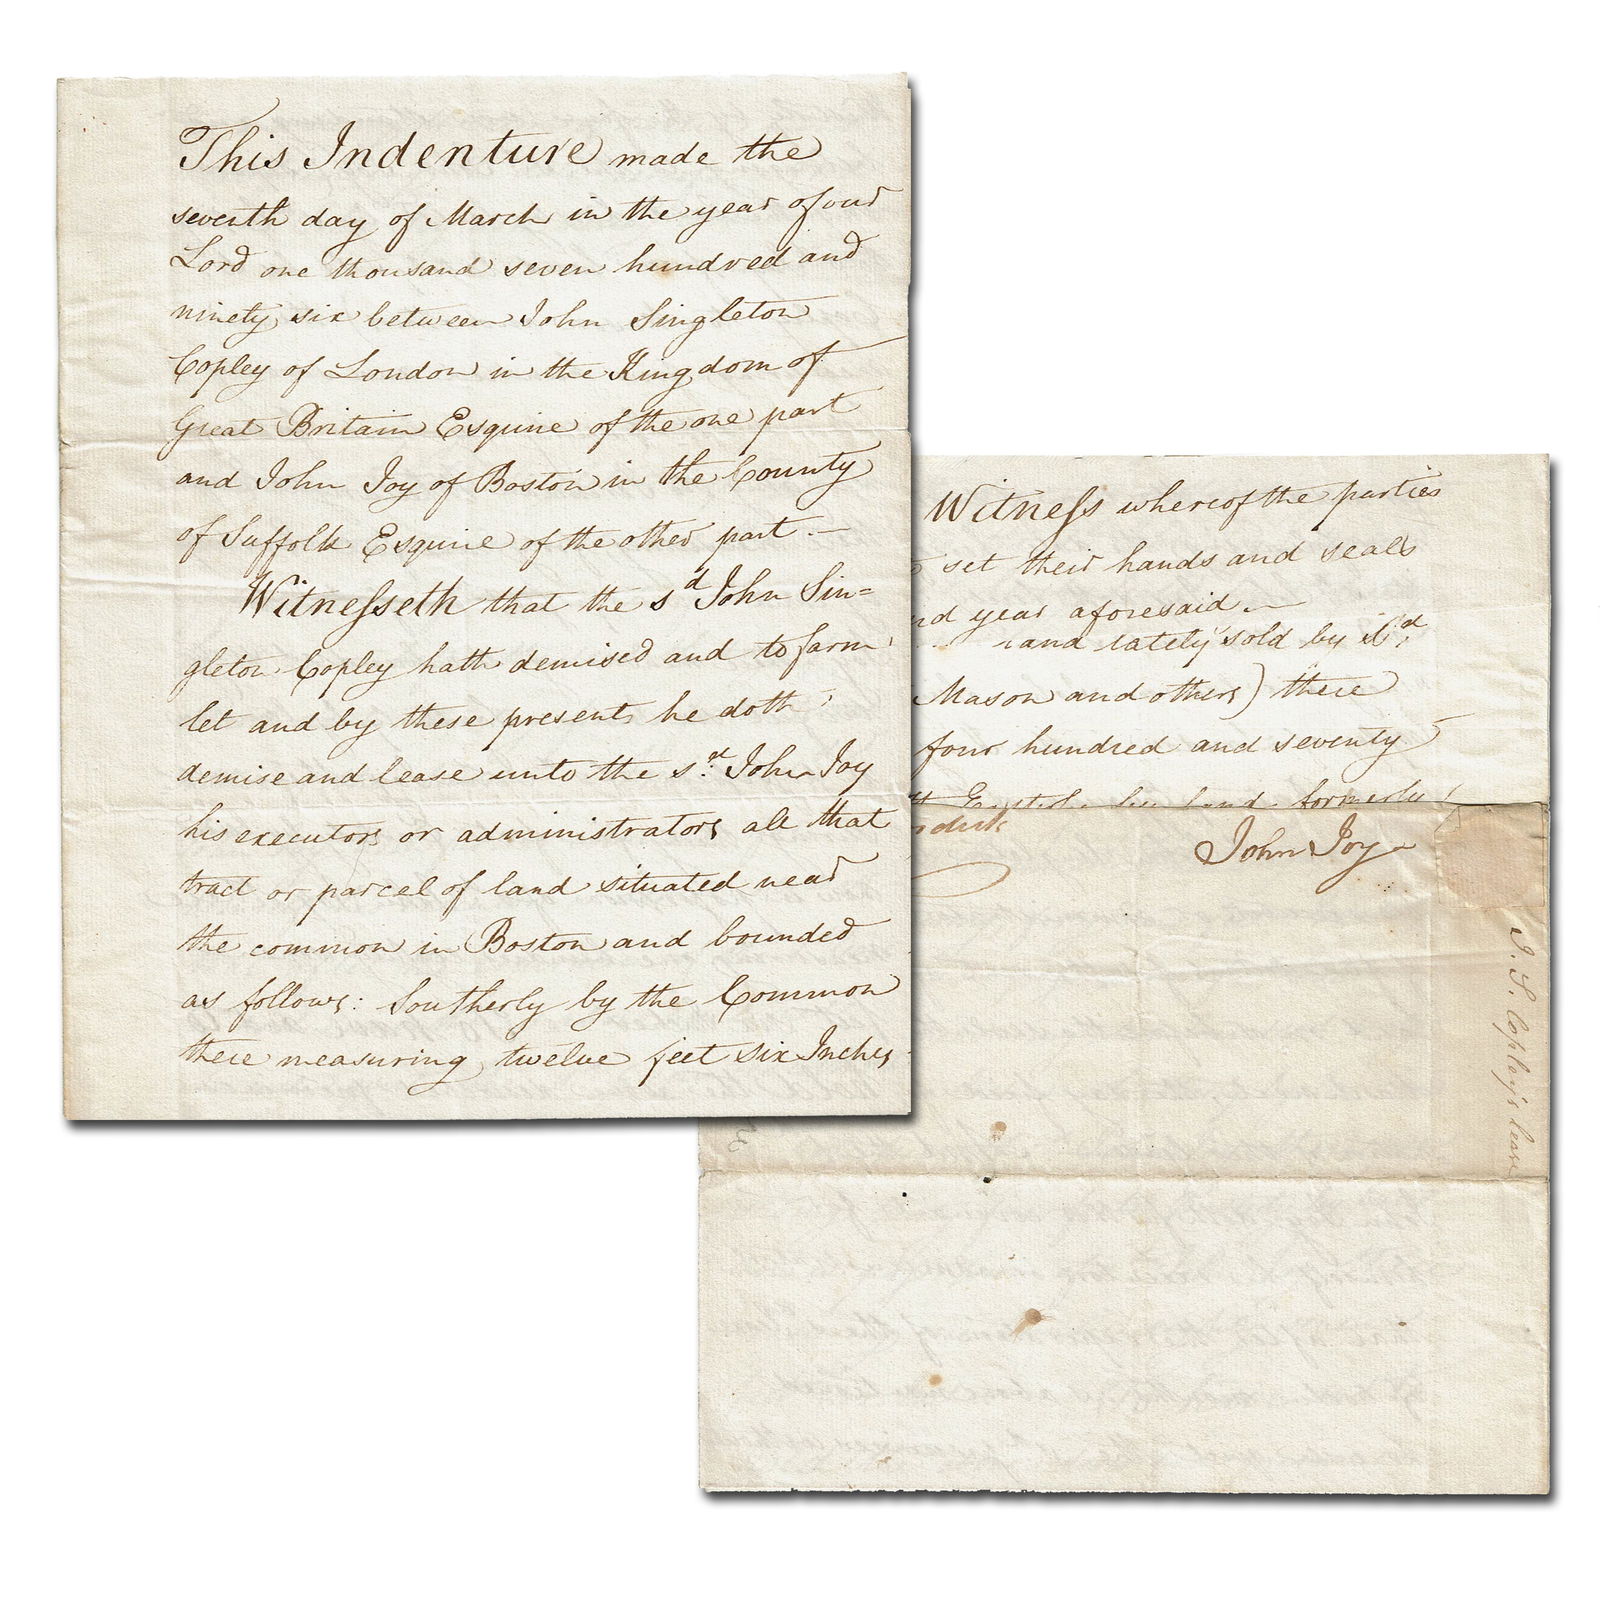 This Indenture made the
seventh day of March in the year of our
Lord one thousand seven hundred and
ninety six between John Singleton
Copley of London in the Kingdom of
Great Britain Esquire of the one part
and John Joy of Boston in the County
of Suffolk Esquire of the other part.—
Witnesseth that the sd John Sin=
gleton Copley hath demised and to farm
let and by these presents he doth
demise and lease unto the sd. John Joy
his executors or administrators all that
tract or parcel of land situated near
the common in Boston and bounded
as follows: Southerly by the Common
there measuring twelve feet six Inches
Witness whereof the parties
set their hands and seals
nd year aforesaid.—
land lately sold by sd
Mason and others) there
four hundred and seventy
land formerly
John Joy
J. S. Copley's lease